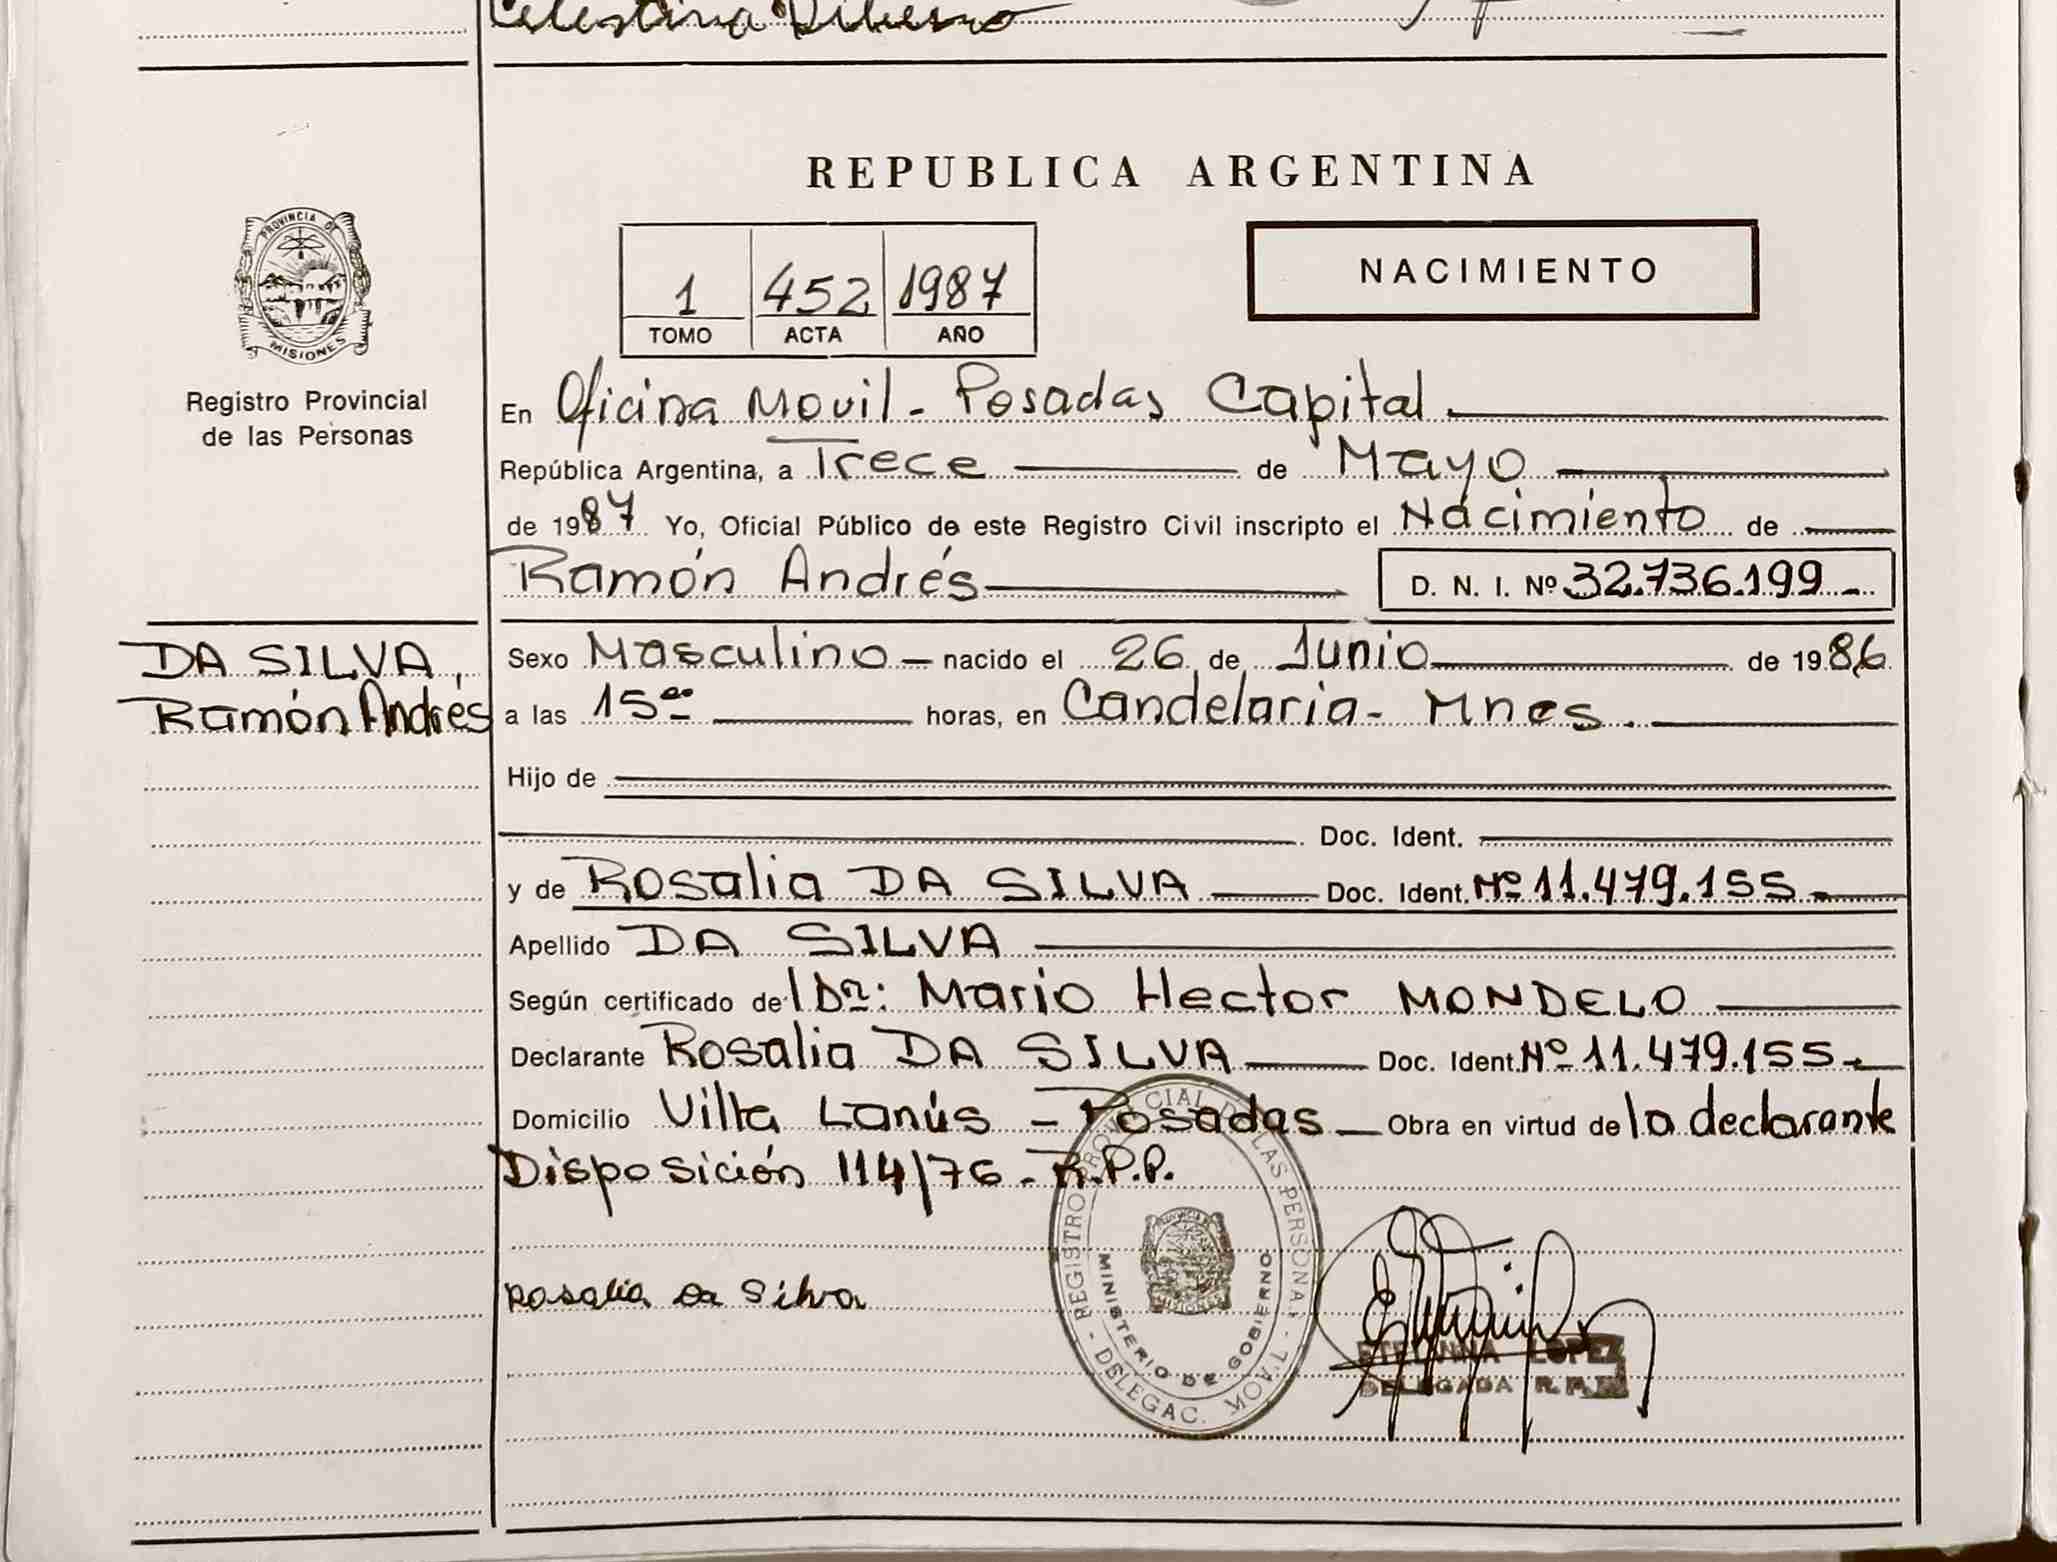 Celestina Ribero
REPUBLICA ARGENTINA
PROVINCIA DE
MISIONES
Registro Provincial
de las Personas
NACIMIENTO
1 452 1987
TOMO ACTA AÑO
En Oficina Movil - Posadas Capital.
República Argentina, a Trece de Mayo
de 1987 Yo, Oficial Público de este Registro Civil inscripto el Nacimiento de
Ramón Andrés D. N. I. Nº 32.736.199 -
DA SILVA,
Ramón Andrés
Sexo Masculino - nacido el 26 de Junio de 1986
a las 15 oo horas, en Candelaria - Mnes.
Hijo de
Doc. Ident.
y de Rosalia DA SILVA Doc. Ident. Nº 11.479.155 -
Apellido DA SILVA
Según certificado de l Dr: Mario Hector MONDELO
Declarante Rosalia DA SILVA Doc. Ident. Nº 11.479.155 -
Domicilio Villa Lanús - Posadas - Obra en virtud de la declarante
Disposición 114/76 - R.P.P.
Rosalia Da Silva
REGISTRO PROVINCIAL DE LAS PERSONAS - DELEGAC. MOVIL -
MINISTERIO DE GOBIERNO
LOPEZ
DELEGADA